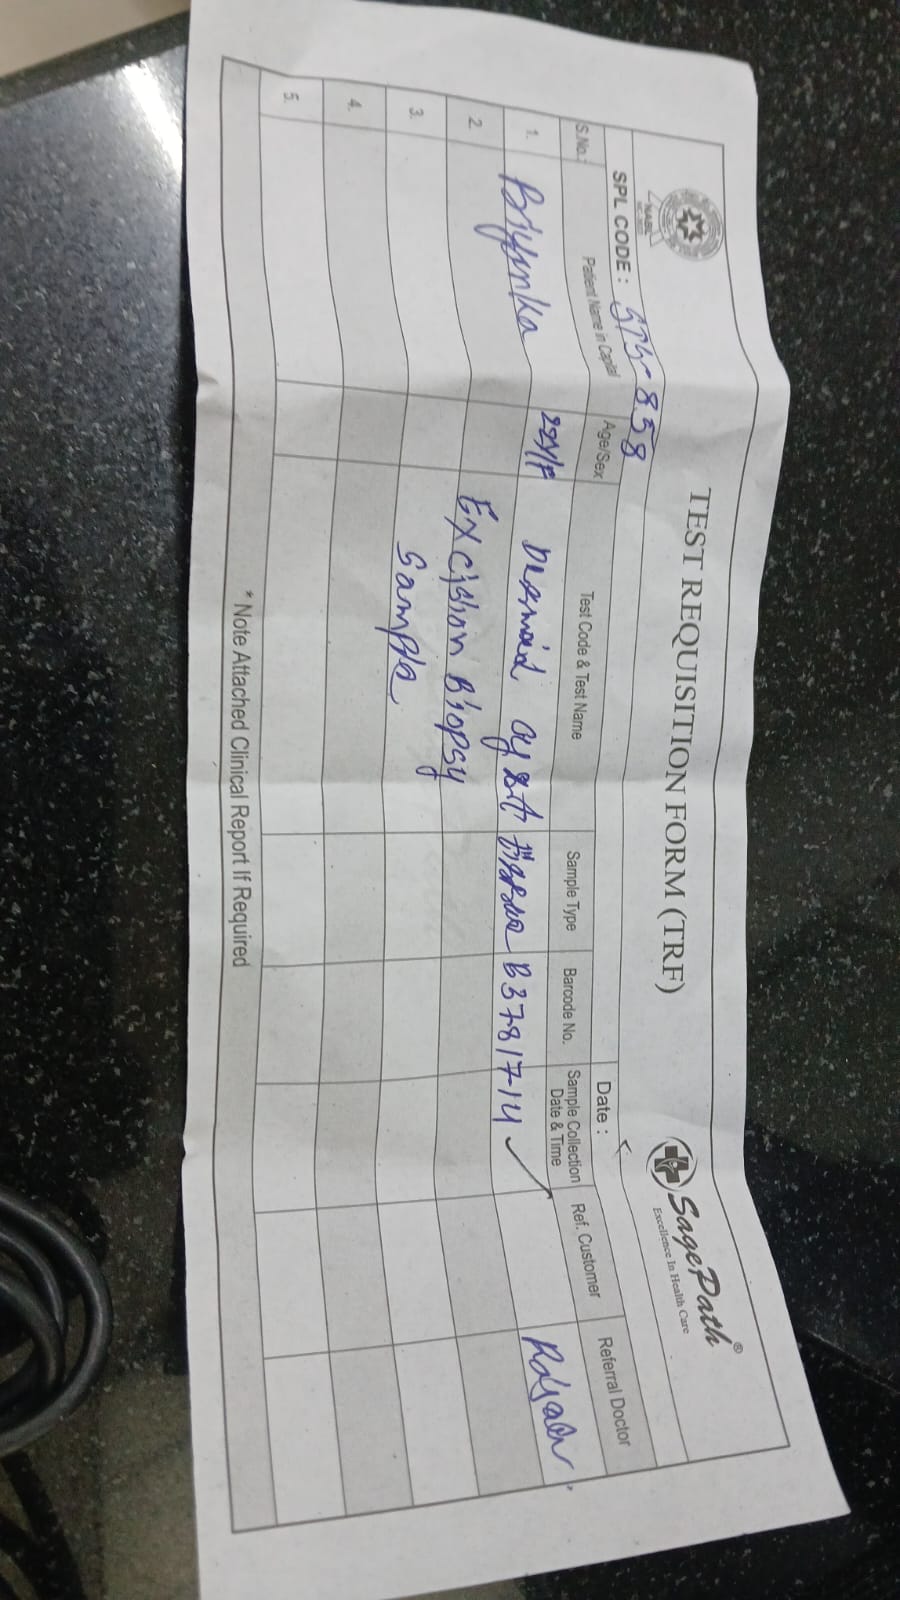 TEST REQUISITION FORM (TRF)
SagePath®
Excellence In Health Care
NABL
SPL CODE : SPL-858
Date :
S.No.: Patient Name in Capital Age/Sex Test Code & Test Name Sample Type Barcode No. Sample Collection Date & Time Ref. Customer Referral Doctor
1. 22Y/F Dermoid cyst B3781714
2. Excision Biopsy
3. Sample
4.
5.
* Note Attached Clinical Report If Required